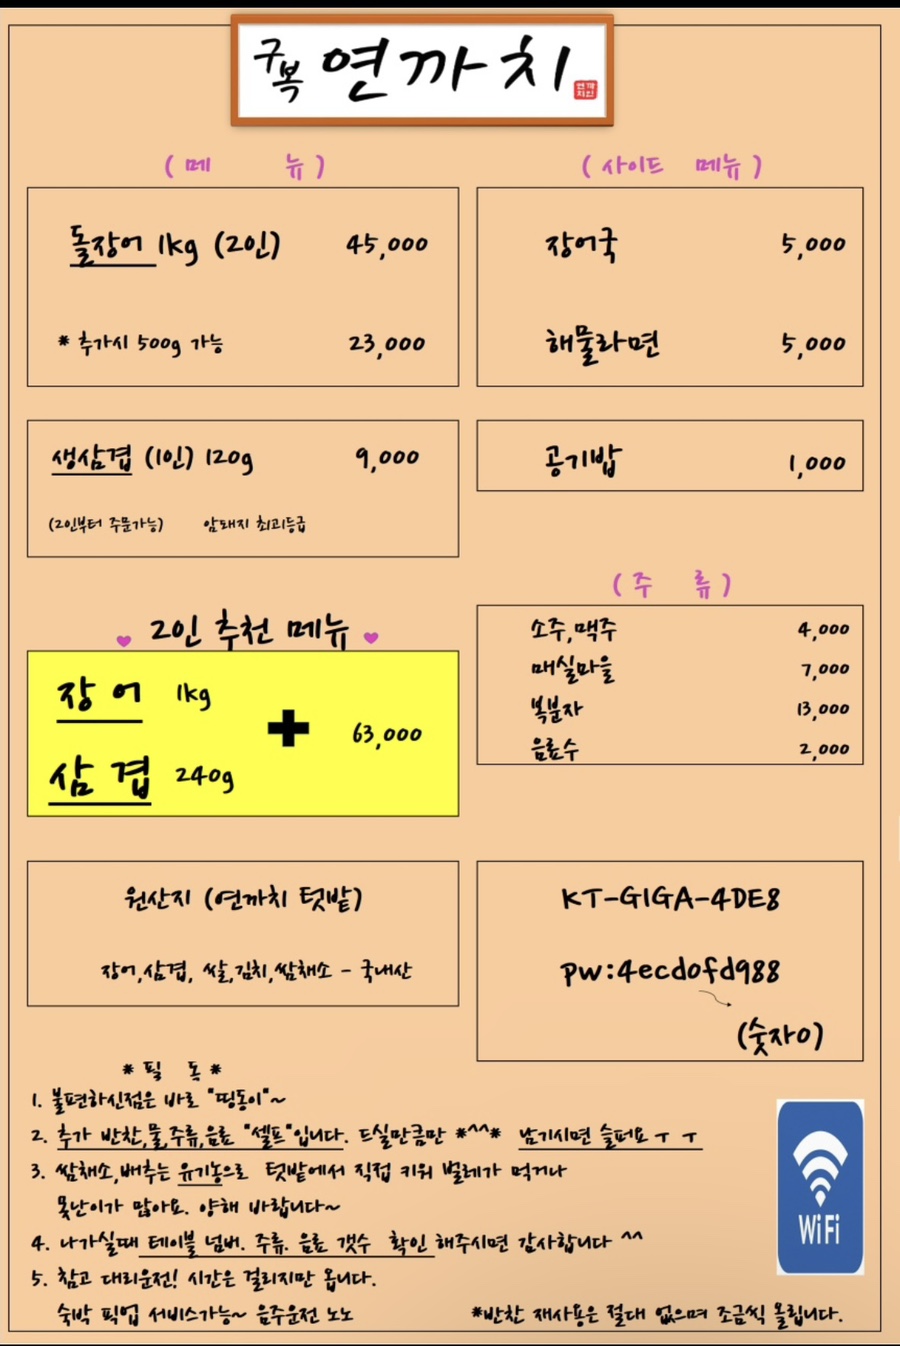 구복 연까치
(메 뉴)
돌장어 1kg (2인) 45,000
* 추가시 500g 가능 23,000
생삼겹 (1인) 120g 9,000
(2인부터 주문가능) 암돼지 최고등급
2인 추천 메뉴
장어 1kg
+ 63,000
삼겹 240g
원산지 (연까치 텃밭)
장어,삼겹, 쌀,김치,쌈채소 - 국내산
(사이드 메뉴)
장어국 5,000
해물라면 5,000
공기밥 1,000
(주 류)
소주,맥주 4,000
매실마을 7,000
복분자 13,000
음료수 2,000
KT-GIGA-4DE8
pw:4ecd0fd988
(숫자0)
* 필 독 *
1. 불편하신점은 바로 "띵동이"~
2. 추가 반찬,물,주류,음료 "셀프"입니다. 드실만큼만 *^^* 남기시면 슬퍼요 ㅜ ㅜ
3. 쌈채소,배추는 유기농으로 텃밭에서 직접 키워 벌레가 먹거나
못난이가 많아요. 양해 바랍니다~
4. 나가실때 테이블 넘버. 주류. 음료 갯수 확인 해주시면 감사합니다 ^^
5. 참고 대리운전! 시간은 걸리지만 옵니다.
숙박 픽업 서비스가능~ 음주운전 노노
*반찬 재사용은 절대 없으며 조금씩 올립니다.
WiFi